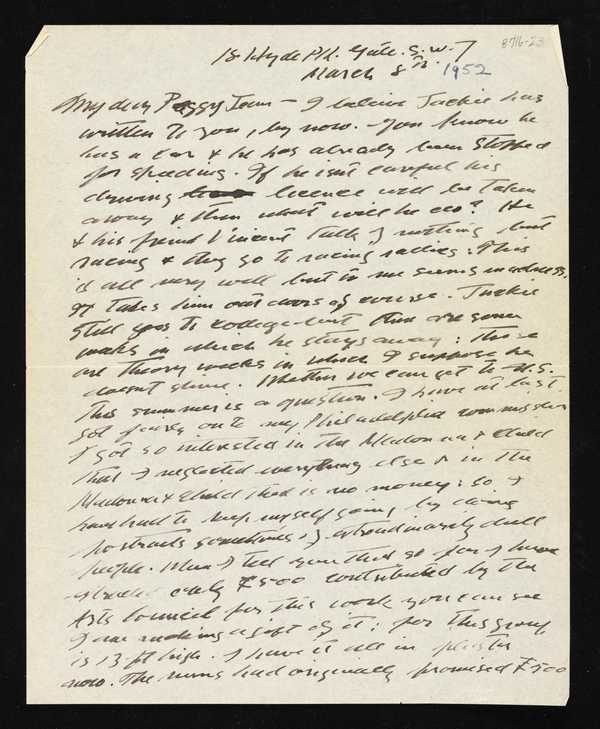 8716-23
18 Hyde Pk. Gate. S.W.7
March 8th. 1952
My dear Peggy Jean – I believe Jackie has
written to you, by now. You know he
has a car & he has already been stopped
for speeding. If he isn't careful his
driving licence will be taken
away & then what will he do? He
& his friend Vincent talk of nothing but
racing & they go to racing rallies: This
is all very well but to me seems madness.
It takes him out doors of course. Jackie
still goes to college but there are some
weeks in which he stays away: those
are theory weeks in which I suppose he
doesn't shine. Whether we can get to U.S.
this summer is a question. I have at last
got fairly on to my Philadelphia commission
I got so interested in the Madonna & Child
that I neglected everything else & in the
Madonna & Child there is no money: so I
have had to keep myself going by doing
portraits sometimes of extraordinarily dull
people. When I tell you that so far I have
received only £500 contributed by the
Arts Council for this work you can see
I am making a gift of it: for this group
is 13 ft high. I have it all in plaster
now. The nuns had originally promised £500